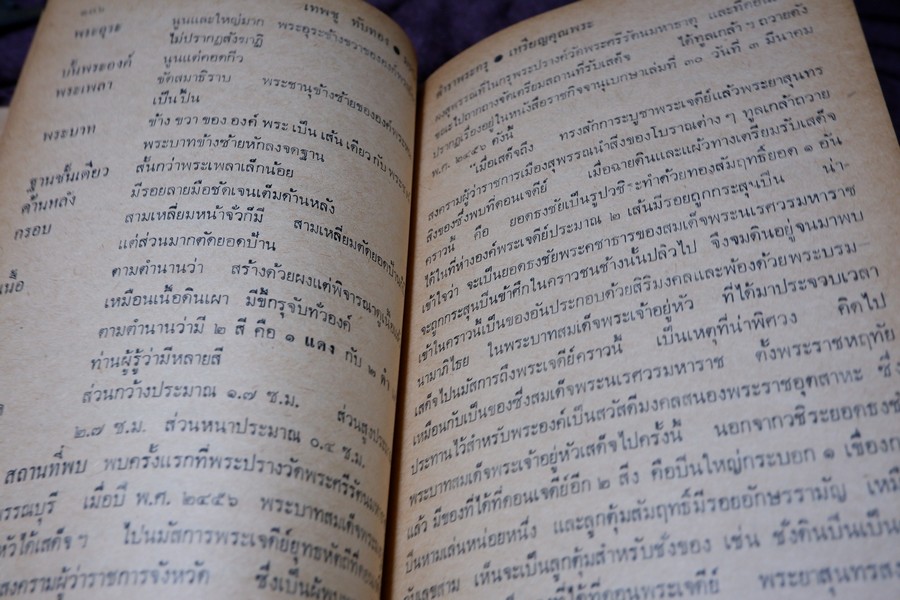 ๒๘๖ เทพชู ทับทอง ●
พระอุระ นูนและใหญ่มาก พระอุระข้างขวาขององค์พระ
ไม่ปรากฏสังฆาฏิ
บั้นพระองค์ นูนแต่คอดกิ่ว
พระเพลา ขัดสมาธิราบ พระชานุข้างซ้ายขององค์พระ
เป็นปืน
พระบาท ข้าง ขวา ของ องค์ พระ เป็น เส้น เดียว กับ พระ
พระบาทข้างซ้ายหักลงจดฐาน
ฐานชั้นเดียว สั้นกว่าพระเพลาเล็กน้อย
ด้านหลัง มีรอยลายมือชัดเจนเต็มด้านหลัง
กรอบ สามเหลี่ยมหน้าจั่วก็มี สามเหลี่ยมตัดยอด
แต่ส่วนมากตัดยอดป้าน
เนื้อ ตามตำนานว่า สร้างด้วยผงแต่พิจารณาดูเนื้อ
เหมือนเนื้อดินเผา มีขี้กรุจับทั่วองค์
ตามตำนานว่ามี ๒ สี คือ ๑ แดง กับ ๒ ดำ
ท่านผู้รู้ว่ามีหลายสี
ส่วนกว้างประมาณ ๑.๗ ซ.ม. ส่วนสูงประมาณ
๒.๗ ซ.ม. ส่วนหนาประมาณ ๐.๔ ซ.ม.
สถานที่พบ พบครั้งแรกที่พระปรางวัดพระศรีรัตนมหา
พรรณบุรี เมื่อปี พ.ศ. ๒๔๕๖ พระบาทสมเด็จพระ
หัวได้เสด็จฯ ไปนมัสการพระเจดีย์ยุทธหัตถีที่ดอน
สงครามผู้ว่าราชการจังหวัด ซึ่งเป็นผู้พบ
ตำราพระกรุ ● เหรียญคุณพระ
ผงสุพรรณที่ในกรุพระปรางค์วัดพระศรีรัตนมหาธาตุ และที่ดอน
ขณะไปถากถางจัดเตรียมสถานที่รับเสด็จ ได้ทูลเกล้าฯ ถวายดัง
ปรากฏเรื่องอยู่ในหนังสือราชกิจจานุเบกษาเล่มที่ ๓๐ วันที่ ๓ มีนาคม
พ.ศ. ๒๔๕๖ ดังนี้
"เมื่อเสด็จถึง ทรงสักการะบูชาพระเจดีย์แล้วพระยาสุนทร
สงครามผู้ว่าราชการเมืองสุพรรณนำสิ่งของโบราณต่าง ๆ ทูลเกล้าถวาย
สิ่งของซึ่งพบที่ดอนเจดีย์ เมื่อฉายดินและแผ้วทางเตรียมรับเสด็จ
คราวนี้ คือ ยอดธงชัยเป็นรูปวชิระทำด้วยทองสัมฤทธิ์ยอด ๑ อัน
ได้ในที่ห่างองค์พระเจดีย์ประมาณ ๒ เส้นมีรอยถูกกระสุนปืน น่า-
เข้าใจว่า จะเป็นยอดธงชัยพระคชาธารของสมเด็จพระนเรศวรมหาราช
จะถูกกระสุนปืนข้าศึกในคราวชนช้างนั้นปลิวไป จึงจมดินอยู่จนมาพบ
เข้าในคราวนี้เป็นของอันประกอบด้วยสิริมงคลและพ้องด้วยพระบรม-
นามาภิไธย ในพระบาทสมเด็จพระเจ้าอยู่หัว ที่ได้มาประจวบเวลา
เสด็จไปนมัสการถึงพระเจดีย์คราวนี้ เป็นเหตุที่น่าพิศวง คิดไป
เหมือนกับเป็นของซึ่งสมเด็จพระนเรศวรมหาราช ตั้งพระราชหฤทัย
ประทานไว้สำหรับพระองค์เป็นสวัสดีมงคลสนองพระราชอุตสาหะ ซึ่ง
พระบาทสมเด็จพระเจ้าอยู่หัวเสด็จไปครั้งนี้ นอกจากวชิระยอดธงชัย
แล้ว มีของที่ได้ที่ดอนเจดีย์อีก ๒ สิ่ง คือปืนใหญ่กระบอก ๑ เชื่อง
ปืนหามเล่นหน่อยหนึ่ง และลูกตุ้มสัมฤทธิ์มีรอยอักษรรามัญ เหมือน
กับเลขสาม เห็นจะเป็นลูกตุ้มสำหรับชั่งของ เช่น ชั่งดินปืนเป็น
ที่ได้ที่ดอนพระเจดีย์ พระยาสุนทรสง